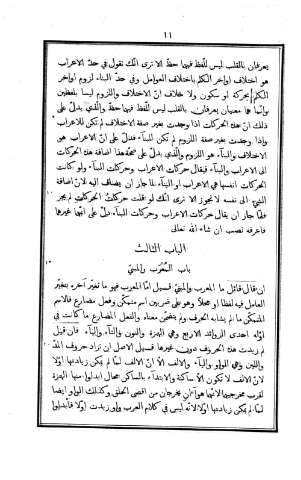 ١١
يعرفان بالقلب ليس للّفظ فيهما حظّ ألا ترى انّك تقول في حدّ الاعراب
هو اختلاف اواخر الكلم باختلاف العوامل وفي حدّ البناء لزوم اواخر
الكلم بحركة او سكون ولا خلاف انّ الاختلاف واللزوم ليسا بلفظين
وانّما هما معنيان يعرفان بالقلب ليس للّفظ فيهما حظّ والّذي يدلّ على
ذلك انّ هذه الحركات اذا وجدت بغير صفة الاختلاف لم تكن للاعراب
واذا وجدت بغير صفة اللزوم لم تكن للبناء فدلّ على انّ الاعراب هو
الاختلاف والبناء هو اللزوم والّذي يدلّ على صحّة هذا اضافة هذه الحركات
الى الاعراب والبناء فيقال حركات الاعراب وحركات البناء ولو كانت
الحركات انفسها هي الاعراب او البناء لما جاز ان يضاف اليه لانّ اضافة
الشيء الى نفسه لا تجوز ألا ترى انّك لو قلت حركات الحركات لم يجز
فلمّا جاز ان يقال حركات الاعراب وحركات البناء دلّ على انّهما غيرها
فاعرفه تصب ان شاء الله تعالى
الباب الثالث
باب المُعْرَب والمبنيّ
ان قال قائل ما المعرب والمبنيّ قيل امّا المعرب فهو ما تغيّر آخره بتغيّر
العامل فيه لفظا او محلّا وهو على ضربين اسم متمكّن وفعل مضارع فالاسم
المتمكّن ما لم يشابه الحرف ولم يتضمّن معناه والفعل المضارع ما كانت في
اوّله احدى الزوائد الاربع وهي الهمزة والنون والتاء والياء فان قيل
لِمَ زيدت هذه الحروف دون غيرها قيل الاصل ان تزاد حروف المدّ
واللين وهي الواو والياء والالف الّا انّ الالف لمّا لم يمكن زيادتها اوّلا
لانّ الالف لا تكون الّا ساكنة والابتداء بالساكن محال ابدلوا منها الهمزة
لقرب مخرجيهما لانّهما هوائيان يخرجان من اقصى الحلق وكذلك الواو ايضا
لمّا لم يمكن زيادتها اوّلا لانّه ليس في كلام العرب واو زيدت اوّلا فابدلوا